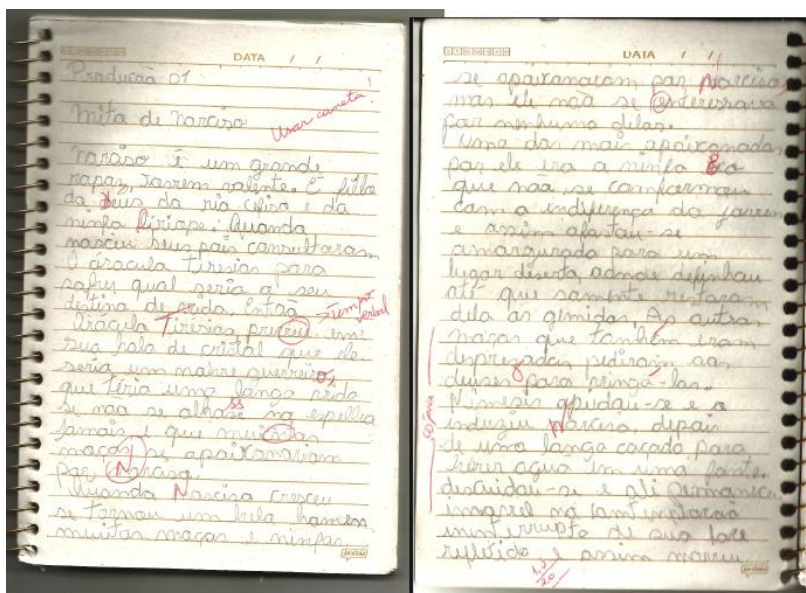 DATA / /
Produção 01
Usar caneta!
Mito de Narciso
Narciso é um grande
rapaz, Jovem valente. É filho
do deus do rio Cefiso e da
ninfa Liriope. Quando
nasceu seus pais consultaram
O oráculo Tirésias para
saber qual seria o seu
destino de vida. Então
tempo verbal
Oráculo Tirésias preveu em
sua bola de cristal que ele
seria um nobre guerreiro,
que teria uma longa vida
se não se olhasse no espelho
jamais e que muintas
moças se apaixonariam
por Narciso.
Quando Narciso cresceu
se tornou um belo homem
muitas moças e ninfas
DATA / /
se apaixonaram por Narciso,
mas ele não se enteressava
por nenhuma delas.
Uma das mais apaixonadas
por ele era a ninfa Eco
que não se conformou
com a indiferença do jovem
e assim afastou-se
amargurada para um
lugar deserto, aonde definhou
até que somente restaram
dela os gemidos. As outras
moças que também eram
desprezadas pediram aos
deuses para vingá-las.
Nêmesis apiedou-se e o
induziu Narciso, depois
de uma longa caçada, para
beber agua em uma fonte.
descuidou-se e ali permaneceu
imovel na contemplação
ininterrupta de sua face
refletido e assim morreu.
cópia
1,0/20